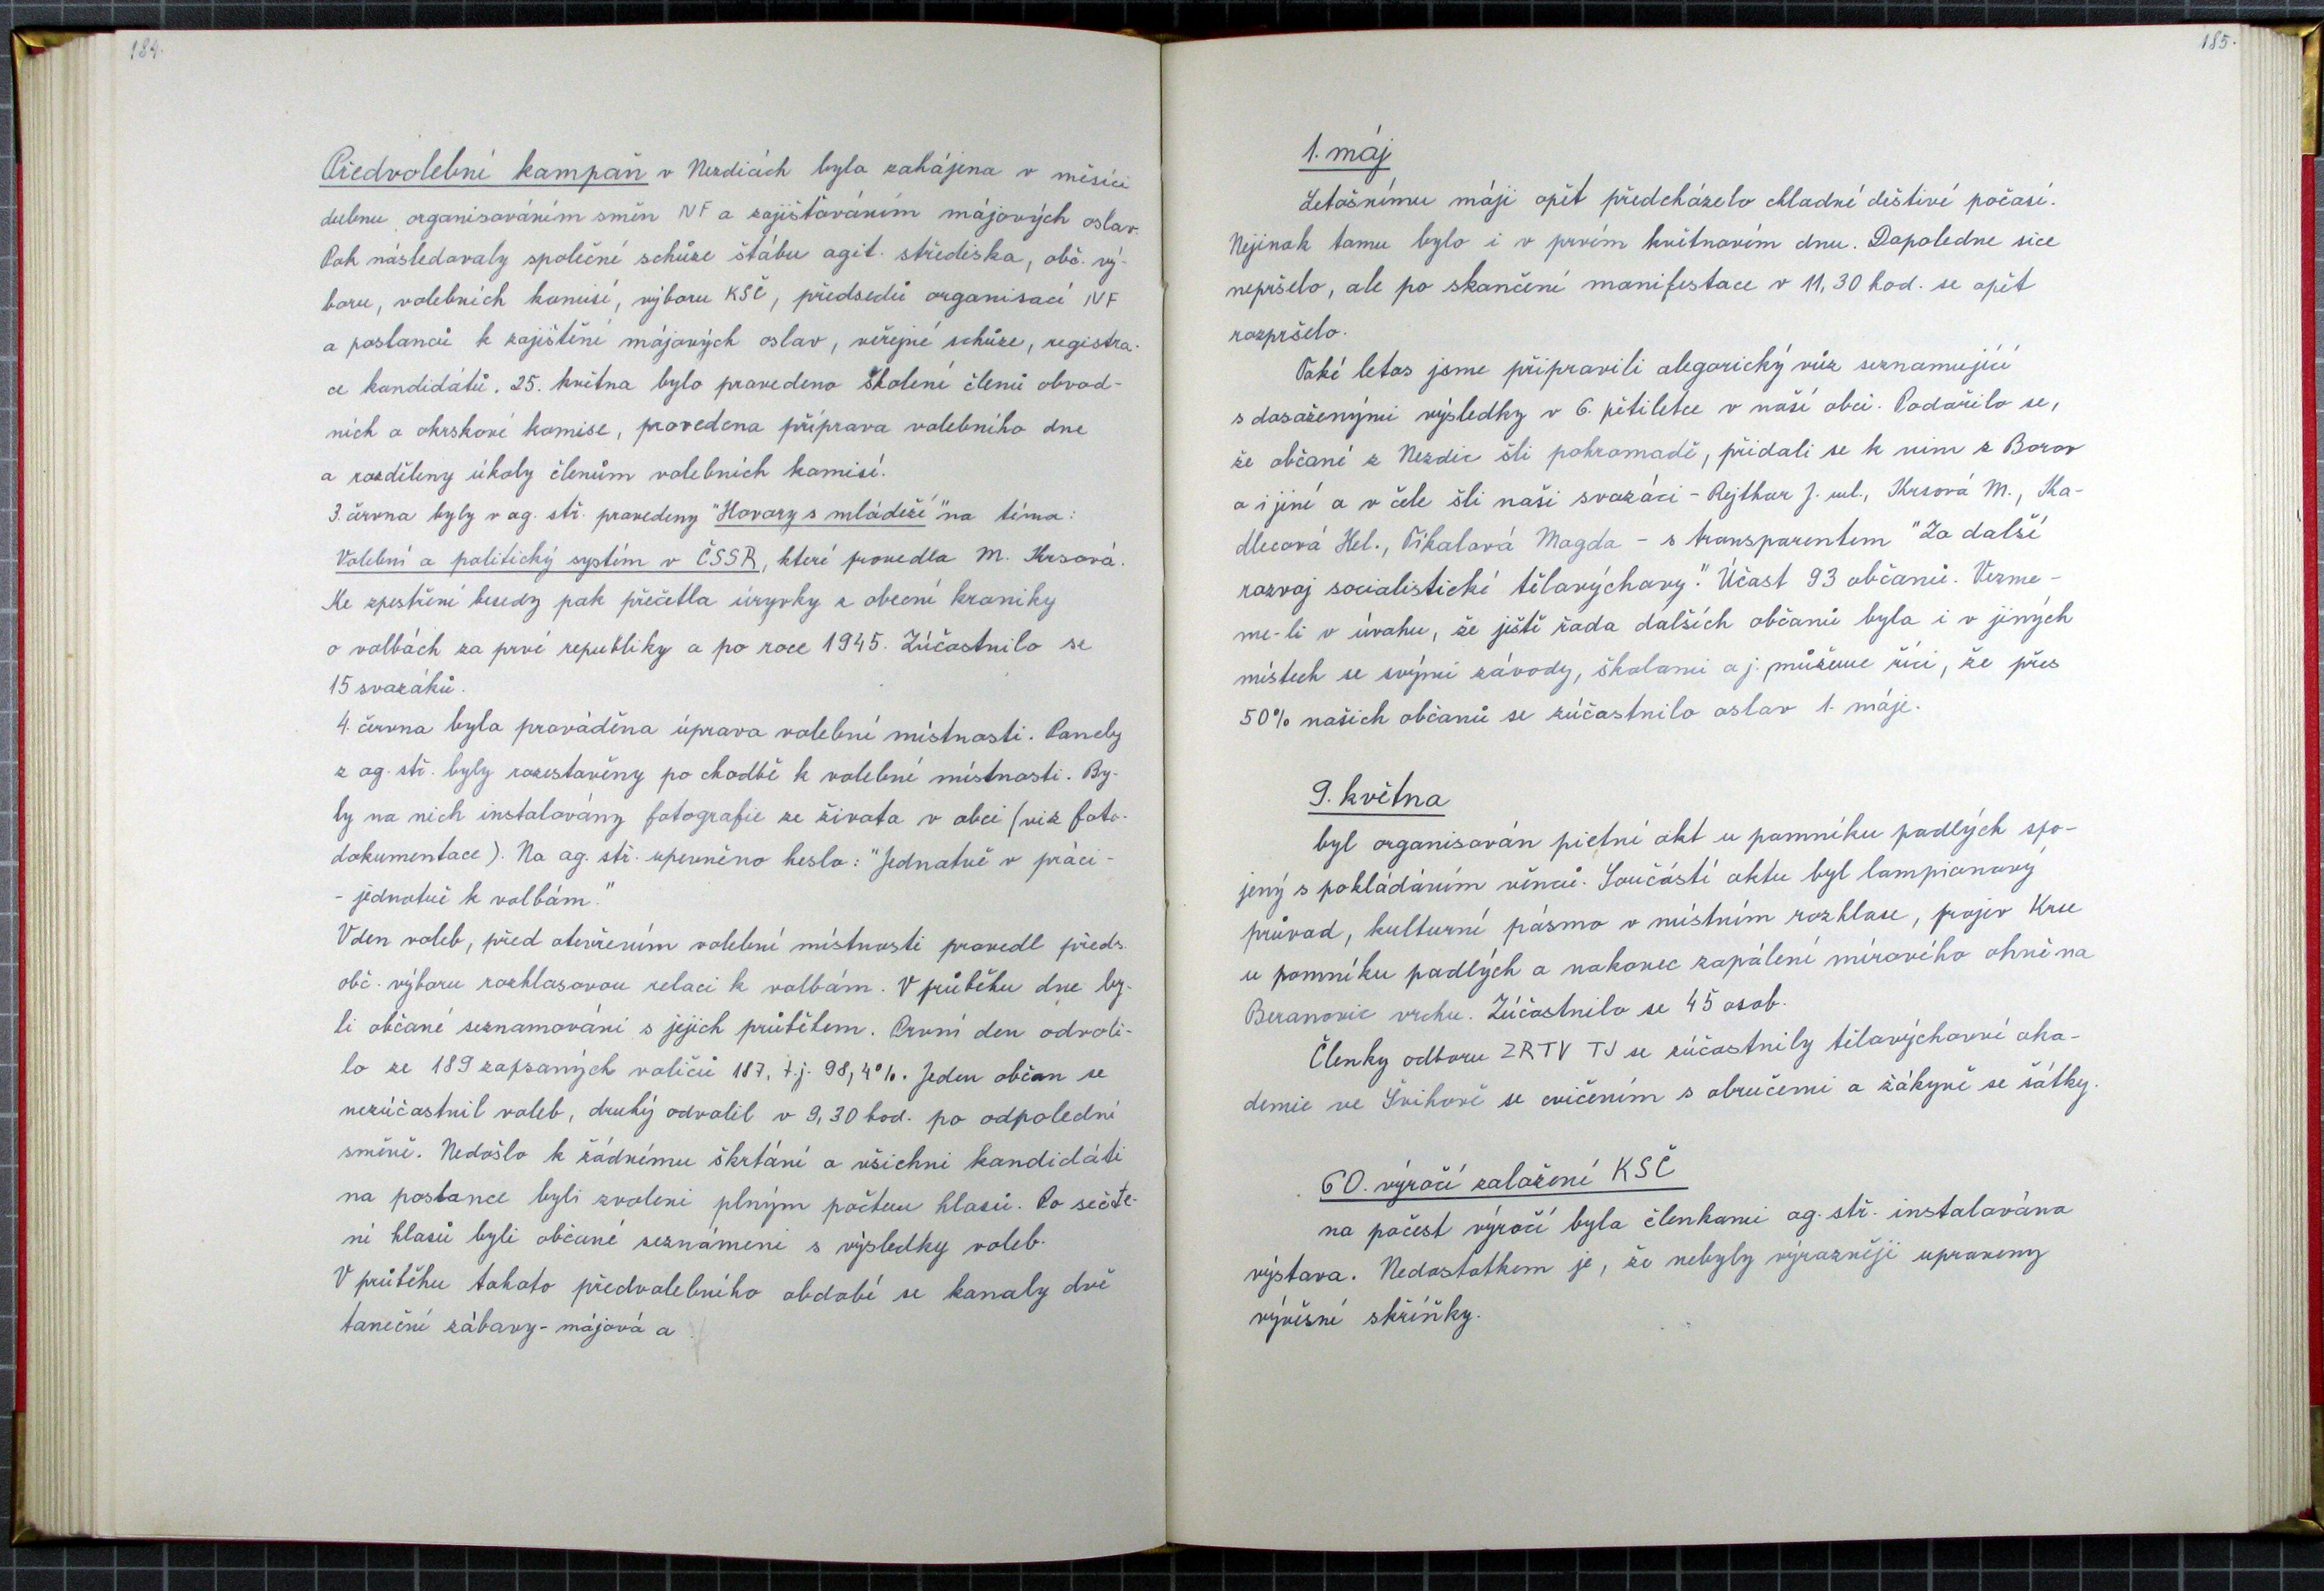 184.
Předvolební kampaň v Nezdicích byla zahájena v měsíci
dubnu organisováním směn NF a zajišťováním májových oslav.
Pak následovaly společné schůze štábu agit. střediska, obč. vý-
boru, volebních komisí, výboru KSČ, předsedů organisací NF
a poslanců k zajištění májových oslav, veřejné schůze, registra-
ce kandidátů. 25. května bylo provedeno školení členů obvod-
ních a okrskové komise, provedena příprava volebního dne
a rozděleny úkoly členům volebních komisí.
3. června byly v ag. stř. provedeny "Hovory s mládeží" na téma:
Volební a politický systém v ČSSR, které provedla M. Krsová.
Ke zpestření besedy pak přečetla úryvky z obecní kroniky
o volbách za prvé republiky a po roce 1945. Zúčastnilo se
15 svazáků.
4. června byla prováděna úprava volební místnosti. Panely
z ag. stř. byly rozestavěny po chodbě k volební místnosti. By-
ly na nich instalovány fotografie ze života v obci (viz foto-
dokumentace). Na ag. stř. upevněno heslo: "Jednotně v práci -
- jednotně k volbám."
V den voleb, před otevřením volební místnosti provedl předs.
obč. výboru rozhlasovou relaci k volbám. V průběhu dne by-
li občané seznamováni s jejich průběhem. První den odvoli-
lo ze 189 zapsaných voličů 187, t.j. 98,4%. Jeden občan se
nezúčastnil voleb, druhý odvolil v 9,30 hod. po odpolední
směně. Nedošlo k žádnému škrtání a všichni kandidáti
na poslance byli zvoleni plným počtem hlasů. Po sečte-
ní hlasů byli občané seznámeni s výsledky voleb.
V průběhu tohoto předvolebního období se konaly dvě
taneční zábavy - májová a
185.
1. máj
Letošnímu máji opět předcházelo chladné deštivé počasí.
Nejinak tomu bylo i v prvém květnovém dnu. Dopoledne sice
nepršelo, ale po skončení manifestace v 11,30 hod. se opět
rozpršelo.
Také letos jsme připravili alegorický vůz seznamující
s dosaženými výsledky v 6. pětiletce v naší obci. Podařilo se,
že občané z Nezdic šli pohromadě, přidali se k nim z Borov
a i jiné a v čele šli naši svazáci - Rejthar J. ml., Krsová M., Ka-
dlecová Hel., Pikalová Magda - s transparentem "Za další
rozvoj socialistické tělovýchovy." Účast 93 občanů. Vezme-
me-li v úvahu, že ještě řada dalších občanů byla i v jiných
místech se svými závody, školami a j. můžeme říci, že přes
50% našich občanů se zúčastnilo oslav 1. máje.
9. května
byl organisován pietní akt u pomníku padlých spo-
jený s pokládáním věnců. Součástí aktu byl lampionový
průvod, kulturní pásmo v místním rozhlase, projev Krse
u pomníku padlých a nakonec zapálení mírového ohně na
Beranovic vrchu. Zúčastnilo se 45 osob.
Členky odboru ZRTV TJ se zúčastnily tělovýchovné aka-
demie ve Švihově se cvičením s obručemi a žákyně se šátky.
60. výročí založení KSČ
na počest výročí byla členkami ag. stř. instalována
výstava. Nedostatkem je, že nebyly výrazněji upraveny
vývěsní skříňky.